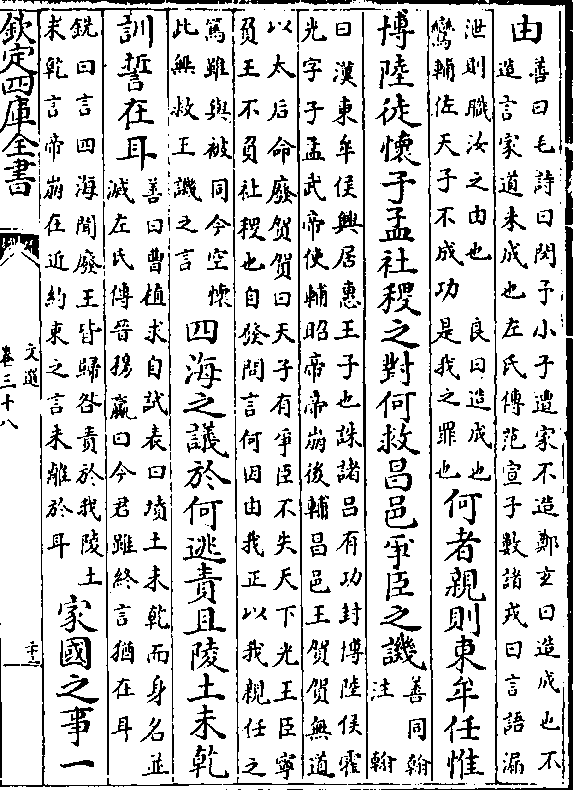 由善曰毛詩曰閔子小子遭家不造鄭玄曰造成也不
造言家道未成也左氏傳范宣子數諸戎曰言語漏
泄則職汝之由也　良曰造成也
鸞輔佐天子不成功是我之罪也
何者親則東牟任惟
博陸徒懷子孟社稷之對何救昌邑爭臣之譏善同翰
注　翰
曰漢東牟侯興居惠王子也誅諸呂有功封博陸侯霍
光字子孟武帝使輔昭帝帝崩後輔昌邑王賀賀無道
以太后命廢賀賀曰天子有爭臣不失天下光王臣寧
負王不負社稷也自發問言何因由我正以我親任之
篤雖與被同今空懷
此無救王譏之言
四海之議於何逃責且陵土未乾
訓誓在耳善曰曹植求自試表曰墳土未乾而身名並
滅左氏傳晉穆嬴曰今君雖終言猶在耳
銑曰言四海聞廢王皆歸咎責於我陵土
未乾言帝崩在近約束之言未離於耳
家國之事一
欽定四庫全書
文選
卷三十八